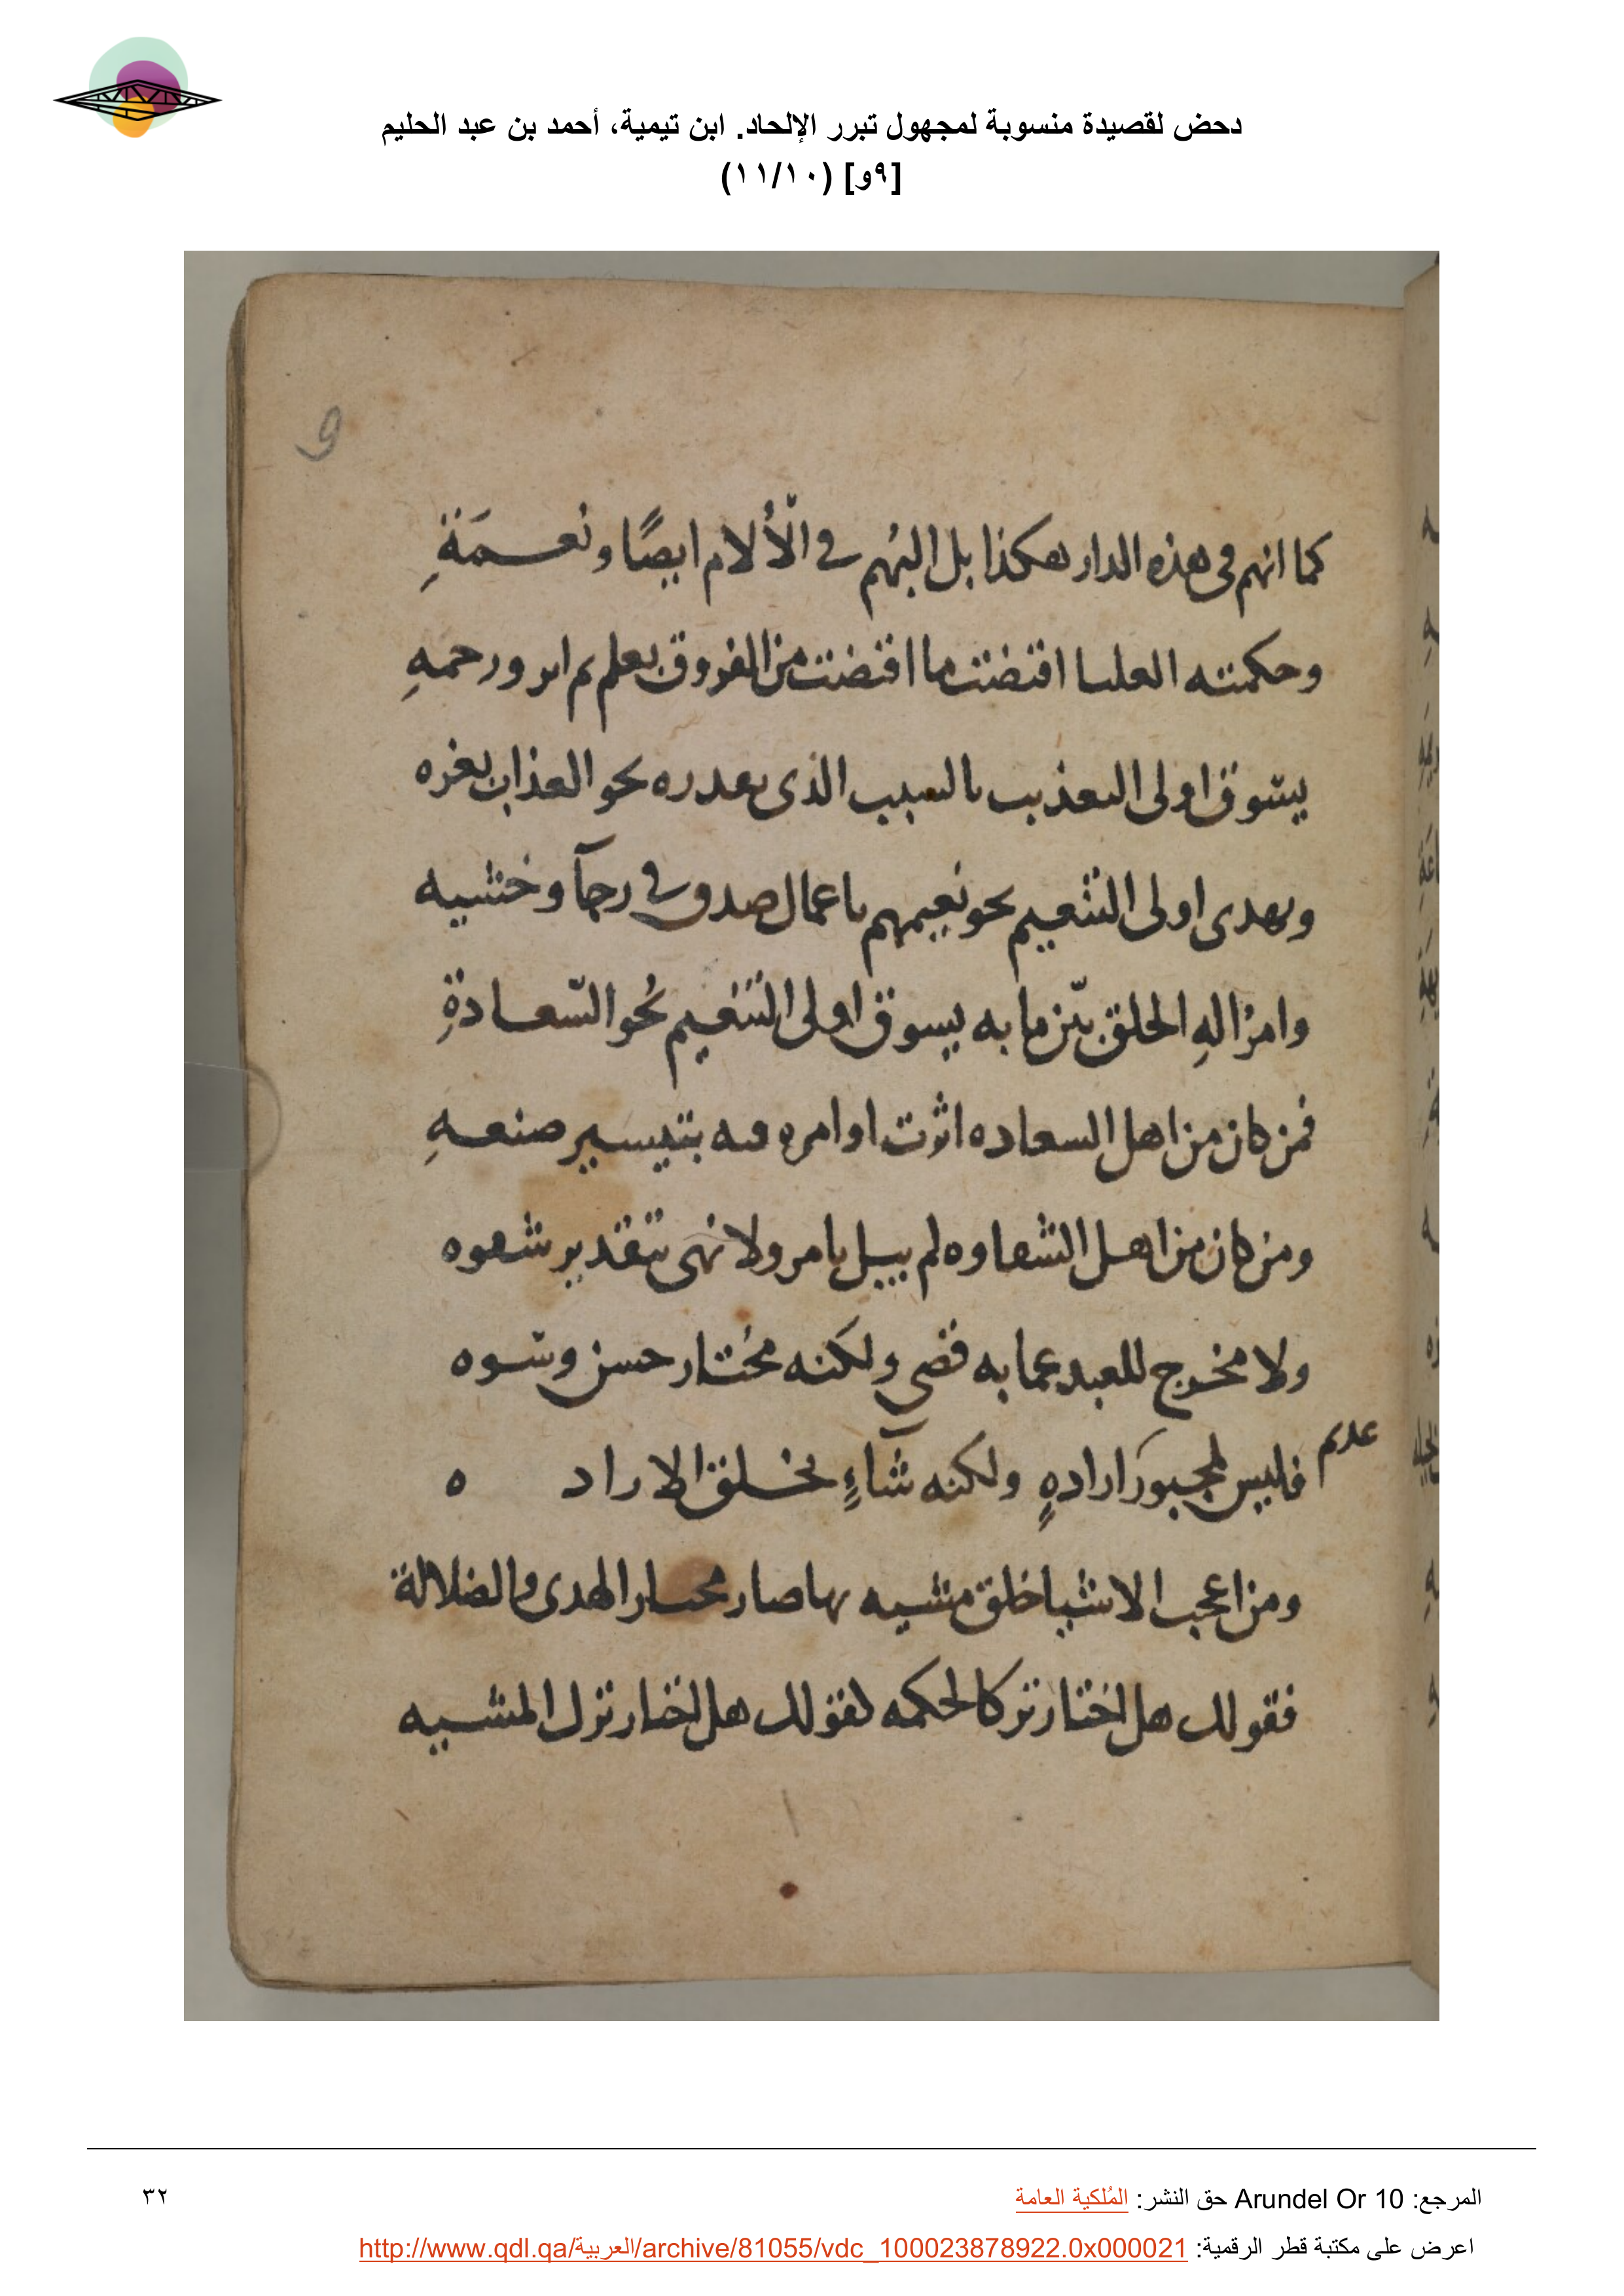 دحض لقصيدة منسوبة لمجهول تبرر الإلحاد. ابن تيمية، أحمد بن عبد الحليم
[٩و] (١١/١٠)
9
كما انهم فى هذه الدار هكذا بل البُهم في الْألام ايضًا ونعمَةِ
وحكمته العليا اقتضت ما اقتضت من الفروق بعلم ثم ايد ورحمهِ
يسوق اولى التعذيب بالسبب الذى يقدره نحو العذاب بغره
ويهدى اولى التنعيم نحو نعيمهم باعمال صدق في رجآ وخشيه
وامرُ الهِ الخلق بيّن ما به يسوق اولى التنعيم نحُو السّعادةِ
فمن كان من اهل السعاده اثرت اوامره فيه بتيسير صنعهِ
ومن كان من اهل الشقاوه لم يبل بامر ولا نهى بتقدير شقوه
ولا مخرج للعبد عما به قضى ولكنه مُختار حسن وسوه
عديم
فليس لمجبورَ ارادهٍ ولكنه شآءٍ بخلق الاراد ه
ومن اعجب الاشيا خلق مشيه بها صار مختار الهدى والضلالة
فقولك هل اختار تركا لحكمه كقولك هل اختار ترك المشيه
المرجع: Arundel Or 10 حق النشر: المُلكية العامة
٣٢
اعرض على مكتبة قطر الرقمية: http://www.qdl.qa/العربية/archive/81055/vdc_100023878922.0x000021